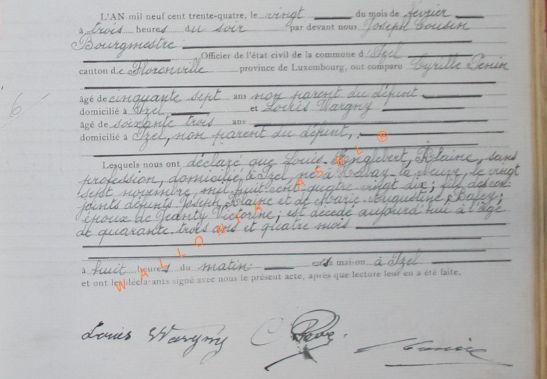 L'AN mil neuf cent trente-quatre, le vingt du mois de février
à trois heures du soir par devant nous Joseph Cousin
Bourgmestre
Officier de l'état civil de la commune d'Izel
canton de Florenville province de Luxembourg, ont comparu Cyrille
6
âgé de cinquante sept ans non parent du défunt
domicilié à Izel, et Louis Wargny
âgé de soixante trois ans
domicilié à Izel, non parent du défunt,
Lesquels nous ont déclaré que Louis Englebert, sans
profession, domicilié à Izel, né à le vingt
sept novembre, mil huit cent quatre vingt dix; fils des con-
joints défunts Joseph, et de Marie
époux de Jeanty Victorine; est décédé aujourd'hui à l'âge
de quarante trois ans et quatre mois
à huit heures du matin en sa maison à Izel
et ont les déclarants signé avec nous le présent acte, après que lecture leur en a été faite.
WALLONIA ASBL ©
Louis Wargny C